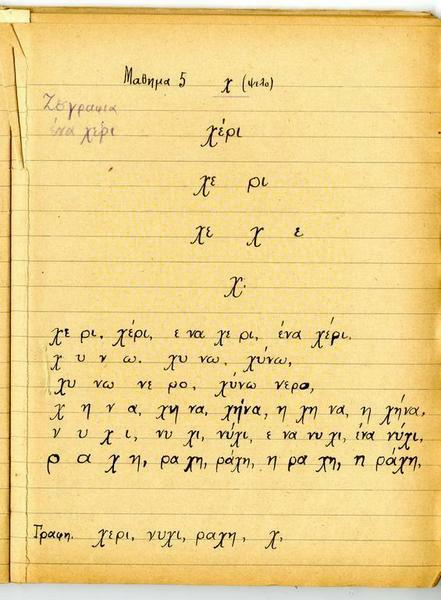 Μαθημα 5 χ (ψιλο)
Ζογραφια
ένα χέρι
χέρι
χε ρι
χε χ ε
χ.
χε ρι, χέρι, ε να χε ρι, ένα χέρι.
χ υ ν ω. χυ νω, χύνω,
χυ νω νε ρο, χύνω νερο,
χ η ν α, χη να, χήνα, η χη να, η χήνα,
ν υ χ ι, νυ χι, νύχι, ε να νυ χι, ένα νύχι,
ρ α χ η, ρα χη, ράχη, η ρα χη, η ράχη,
Γραφη. χερι, νυχι, ραχη, χ,